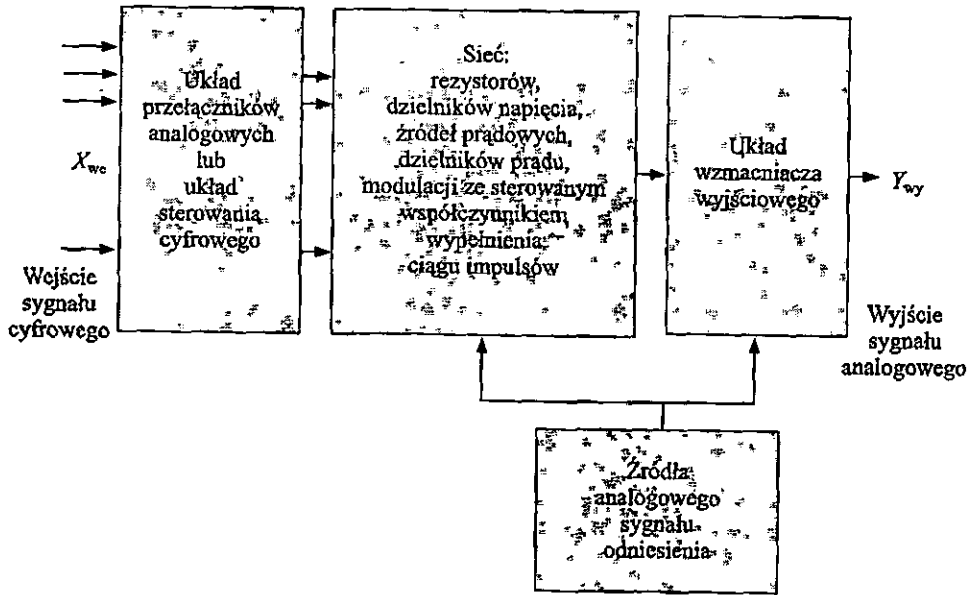 Układ
przełączników
analogowych
lub
układ
sterowania
cyfrowego
X_we
Wejście
sygnału
cyfrowego
Sieć:
rezystorów,
dzielników napięcia,
źródeł prądowych,
dzielników prądu,
modulacji ze sterowanym
współczynnikiem
wypełnienia
ciągu impulsów
Układ
wzmacniacza
wyjściowego
Y_wy
Wyjście
sygnału
analogowego
Źródła
analogowego
sygnału
odniesienia